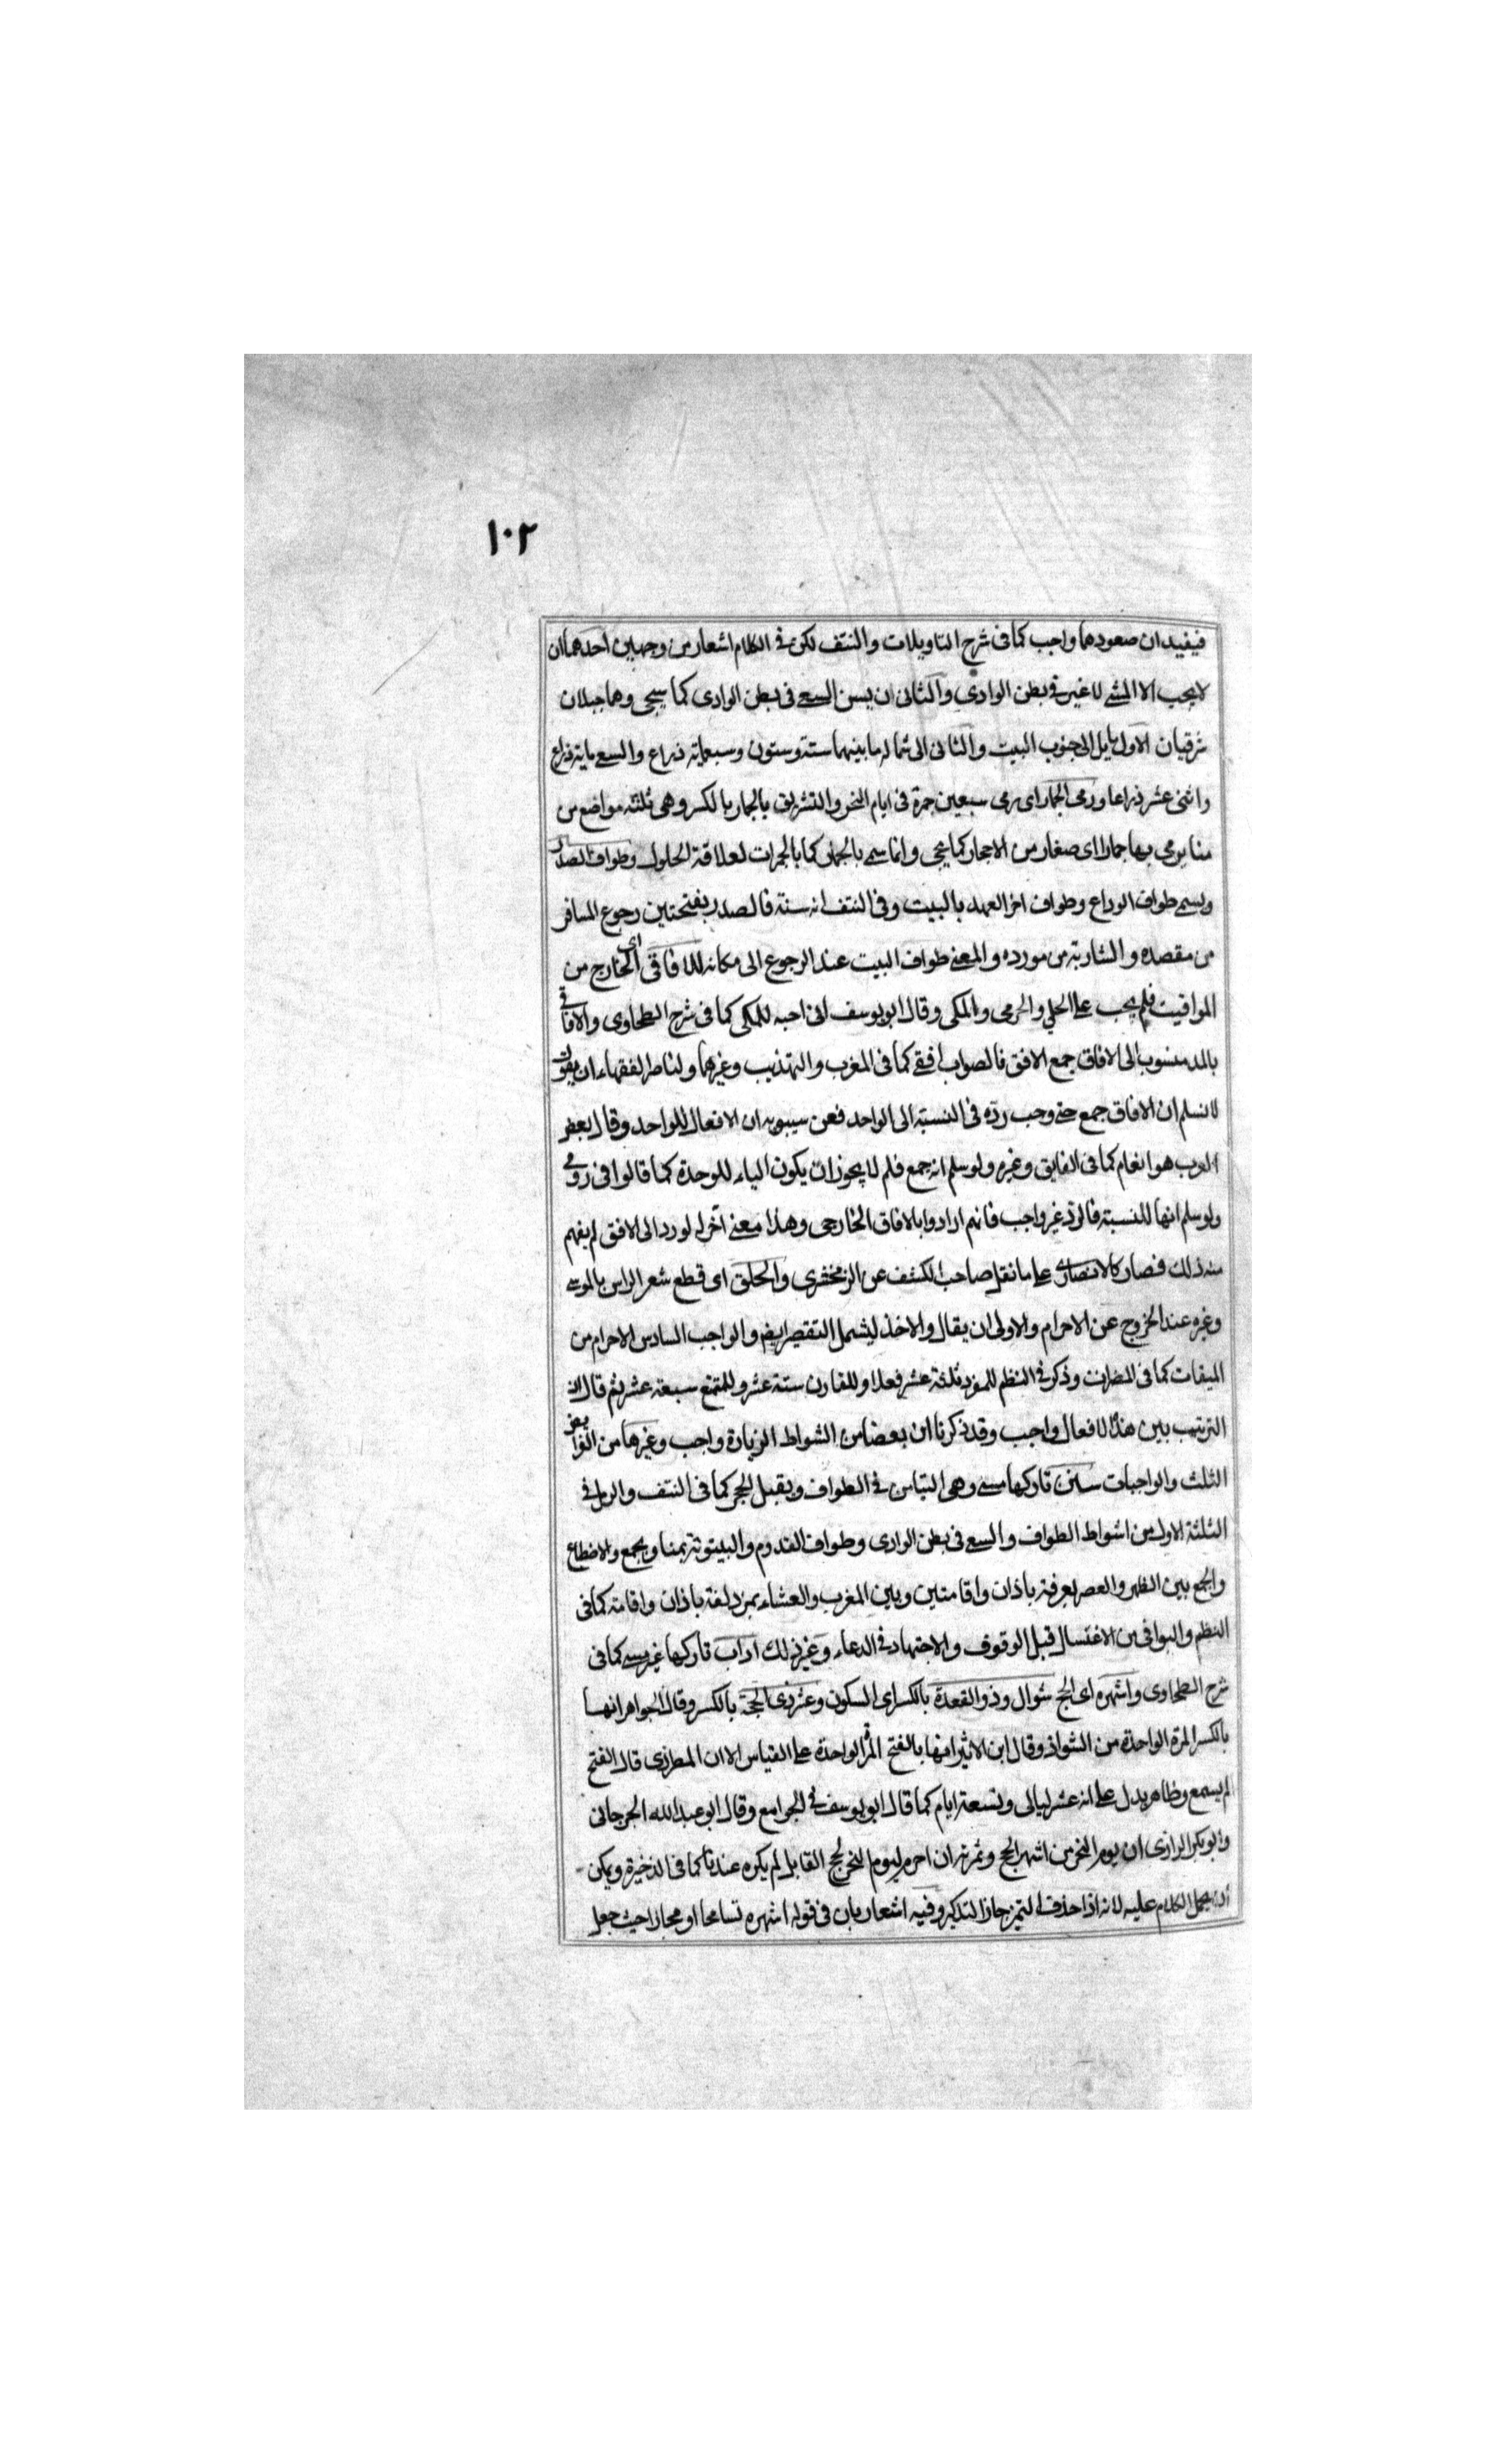 ١٠٢
فيفيد ان صعودهما واجب كما فى شرح التاويلات والنتف لكن فى الكلام اشعار من وجهين احدهما ان
لا يجب الا المشى لا غير فى بطن الوادى والثانى ان يسن السعى فى بطن الوادى كما سيجى وهما جبلان
شرقيان الاول مايل الى جنوب البيت والثانى الى شماله ما بينهما ستة وستون وسبعماية ذراع والسعى ماية ذراع
واثنى عشر ذراعا ورمى الجمار اى رمى سبعين جمرة فى ايام النحر والتشريق بالجمار بالكسر وهى ثلثة مواضع من
منا يرمى بها جمارا اى صغار من الاحجار كما يجى وانما سمى بالجمار كما بالجمرات لعلاقة الحلول وطواف الصدر
ويسمى طواف الوداع وطواف اخر العهد بالبيت وفى النتف انه سنة فالصدر بفتحتين رجوع المسافر
من مقصده والشاربة من مورده والمعنى طواف البيت عند الرجوع الى مكانه للافاقى اى الخارج من
المواقيت فلم يجب على الحلى والحرمى والمكى وقال ابو يوسف انى احبه للمكى كما فى شرح الطحاوى والافاقى
بالمد منسوب الى الافاق جمع الافق فالصواب افقى كما فى المغرب والتهذيب وغيرهما ولناصر الفقهاء ان يقول
لا نسلم ان الافاق جمع حتى وجب رده فى النسبة الى الواحد فعن سيبويه ان الافعال للواحد وقال بعض
العرب هو انعام كما فى الفايق وغيره ولو سلم انه جمع فلم لا يجوز ان يكون الياء للوحدة كما قالوا فى رومى
ولو سلم انها للنسبة فالرد غير واجب فانهم ارادوا بالافاق الخارجى وهذا معنى آخر له لو رد الى الافق لم يفهم
منه ذلك فصار كالانصارى على ما نقل صاحب الكشف عن الزمخشرى والحلق اى قطع شعر الراس بالموسى
وغيره عند الخروج عن الاحرام والاولى ان يقال والاخذ ليشمل التقصير ايضا والواجب السادس الاحرام من
الميقات كما فى المضمرات وذكر فى النظم للمفرد ثلثة عشر فعلا وللقارن ستة عشر وللمتمتع سبعة عشر ثم قال ان
الترتيب بين هذه الافعال واجب وقد ذكرنا ان بعضا من اشواط الزيارة واجب وغيرها من الفرايض
الثلث والواجبات سنن تاركها مسى وهى التيامن فى الطواف وتقبيل الحجر كما فى النتف والرمل فى
الثلثة الاول من اشواط الطواف والسعى فى بطن الوادى وطواف القدوم والبيتوتة بمنا وبجمع والاضطباع
والجمع بين الظهر والعصر بعرفة باذان واقامتين وبين المغرب والعشاء بمزدلفة باذان واقامة كما فى
النظم والبواقى من الاغتسال قبل الوقوف والاجتهاد فى الدعاء وغير ذلك اداب تاركها غير مسى كما فى
شرح الطحاوى واشهره اى الحج شوال وذو القعدة بالكسر اى السكون وعشر ذى الحجة بالكسر وقال الجواهر انها
بالكسر المرة الواحدة من الشواذ وقال ابن الاثير انها بالفتح المرة الواحدة على القياس الا ان المطرزى قال الفتح
لم يسمع وظاهره يدل على انه عشر ليالى وتسعة ايام كما قال ابو يوسف فى الجوامع وقال ابو عبد الله الجرجانى
وابو بكر الرازى ان يوم النحر من اشهر الحج وثمرته ان احرم ليوم النحر لحج القابل لم يكره عندنا كما فى الذخيرة ويمكن
ان يحمل الكلام عليه لانه اذا حذف التميز جاز التذكير وفيه اشعار بان فى قوله اشهره تسامحا او مجازا حيث جعل